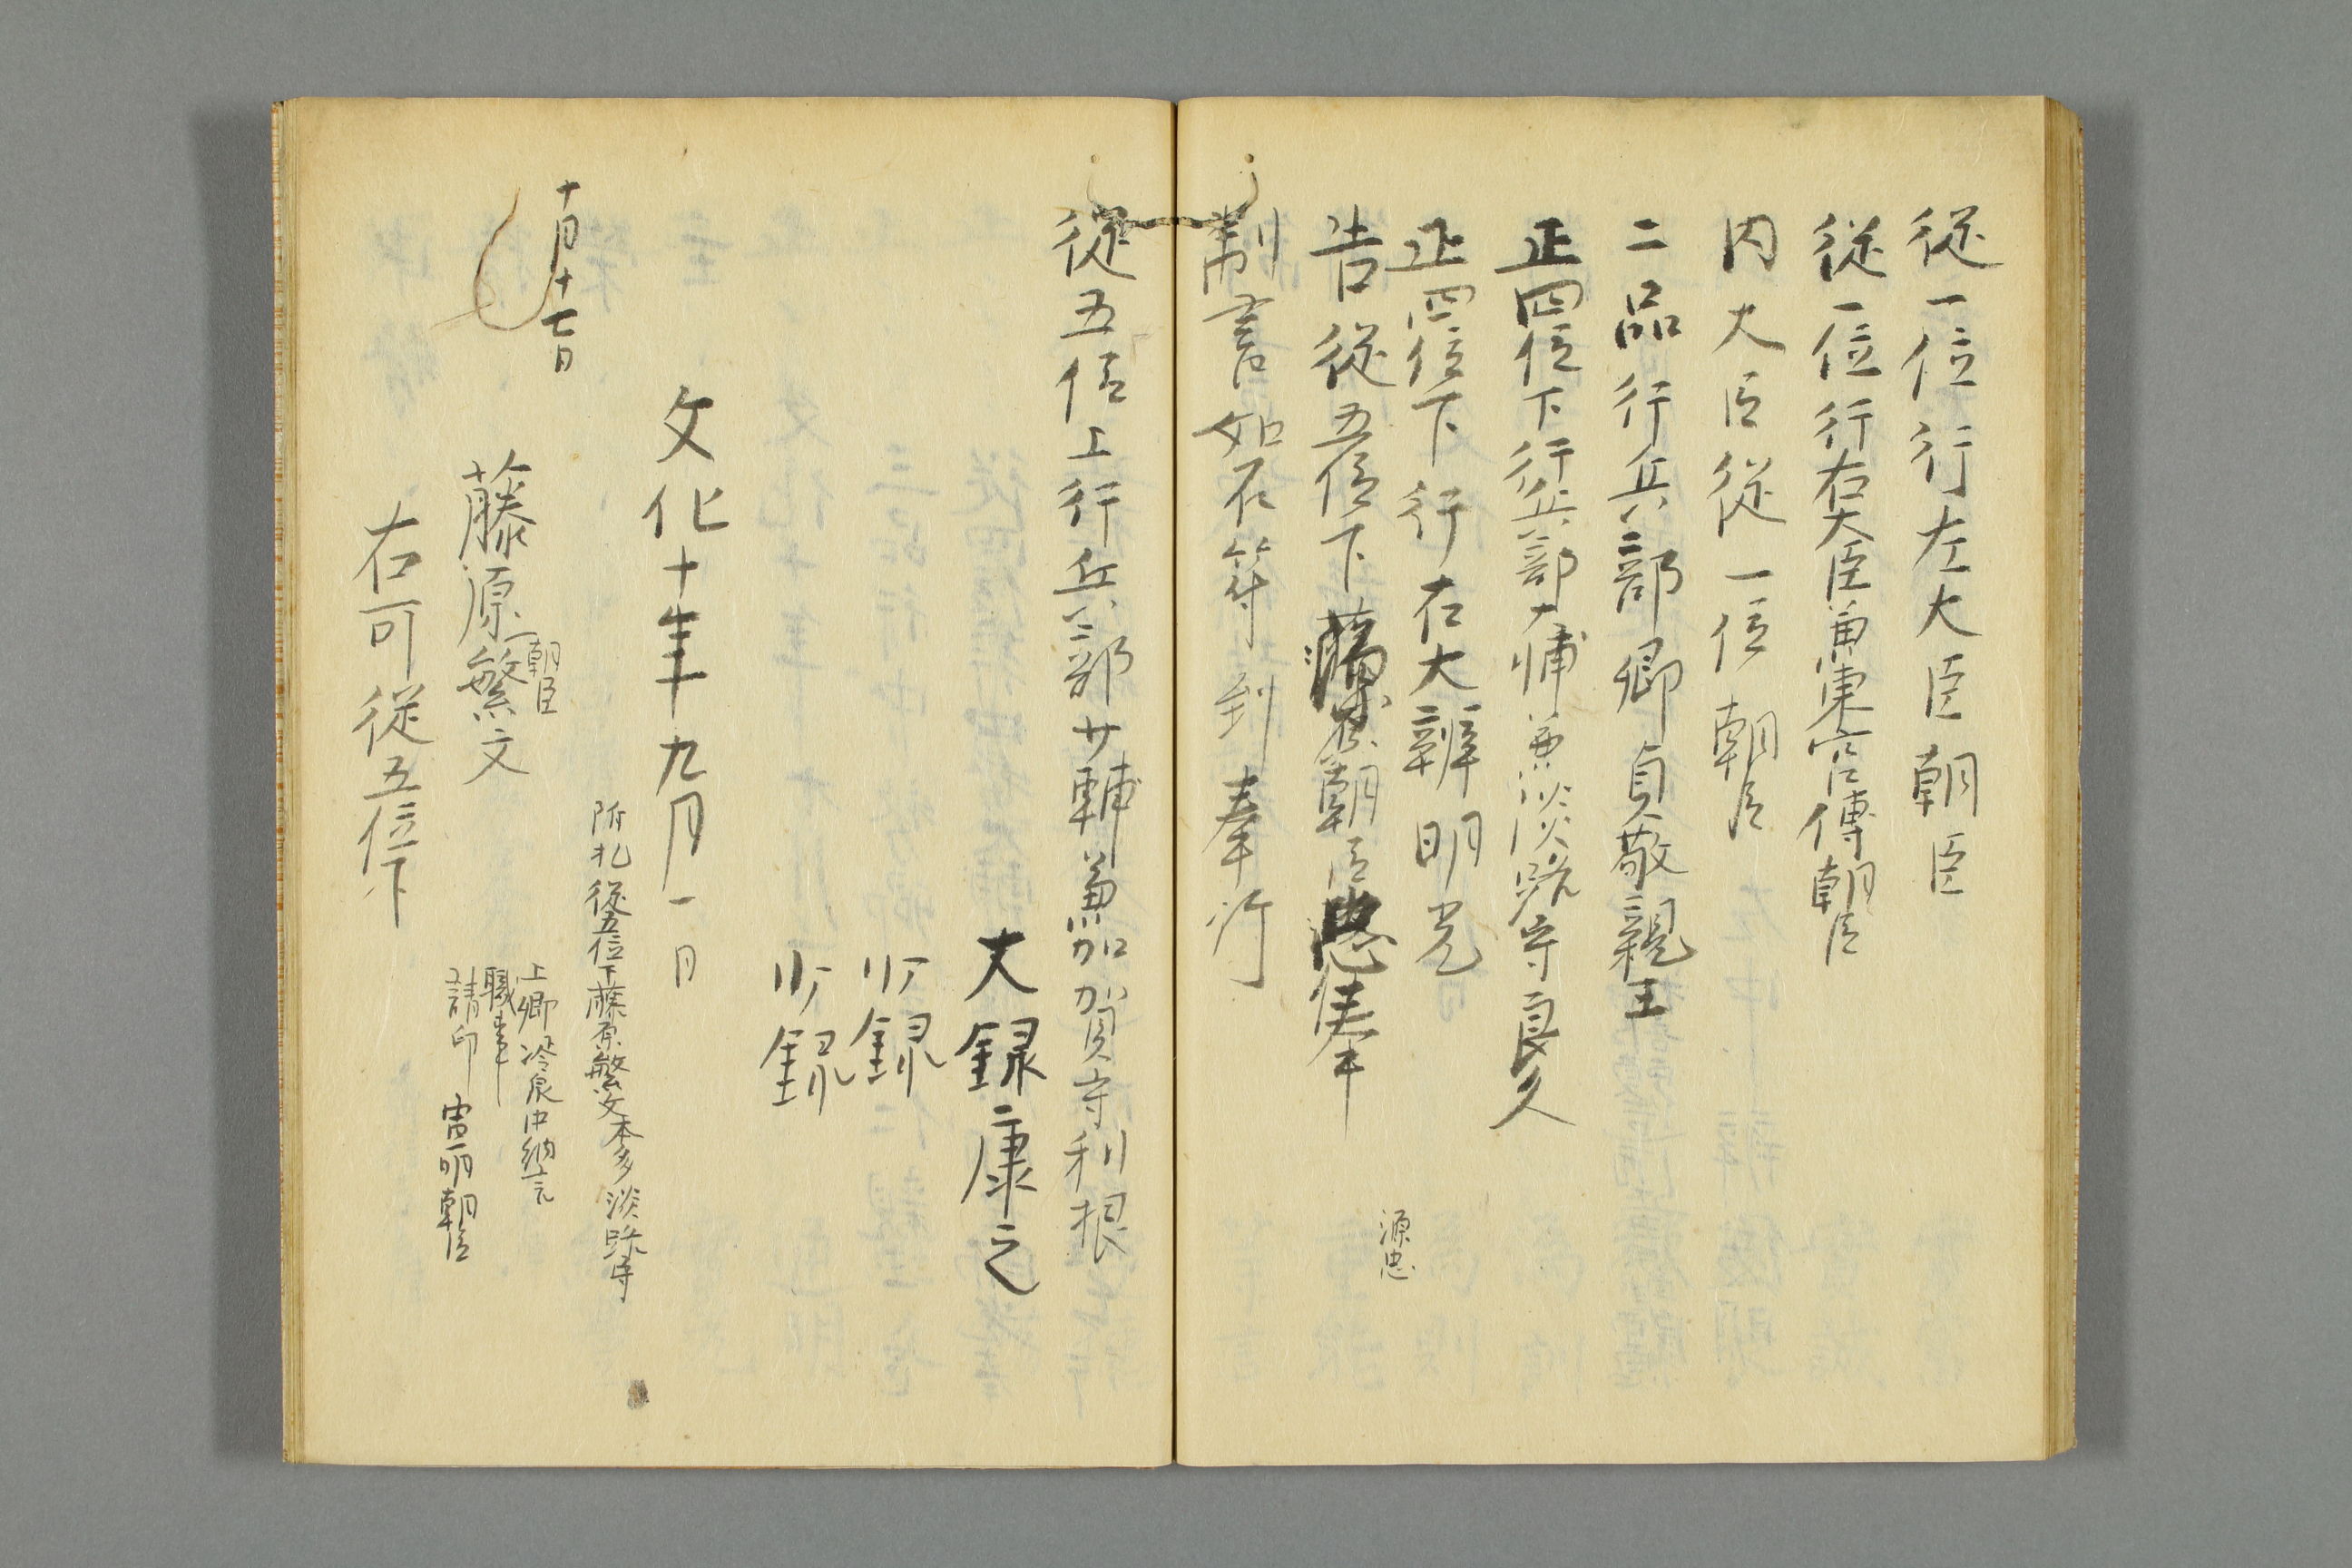 従一位行左大臣朝臣
従一位行右大臣兼東宮傅朝臣
内大臣従一位朝臣
二品行兵部卿貞敬親王
正四位下行兵部大輔兼淡路守良久
正四位下行右大辨明光
告従五位下朝臣奉
源忠
制書如右符到奉行
従五位上行兵部少輔兼加賀守利根
大録康之
少録
少録
文化十年九月一日
附札従五位下藤原繁文本多淡路守
十月十七日
朝臣
藤原繁文
上卿冷泉中納言
職事
請印 明朝臣
右可従五位下